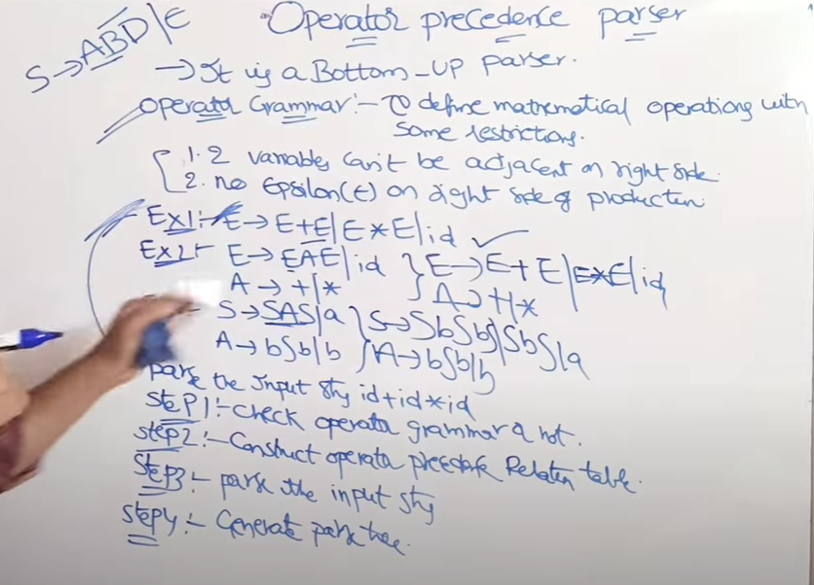 Operator precedence parser
S→ABD|ε
→It is a Bottom-UP parser.
operator Grammar:- To define mathematical operations with
Some restrictions.
1. 2 variables can't be adjacent on right side.
2. no Epsilon(ε) on right side of production
Ex1:- E→ E+E|E*E|id ✓
Ex2:- E→ EAE|id } E→E+E|E*E|id
A→ +|* A→+|*
S→SAS|a } S→SbSbS|SbS|a
A→bSb|b A→bSb|b
parse the Input string id+id*id
Step1:- check operator grammar or not.
Step2:- Construct operator precedence Relation table.
Step3:- parse the input string
Step4:- Generate parse tree.